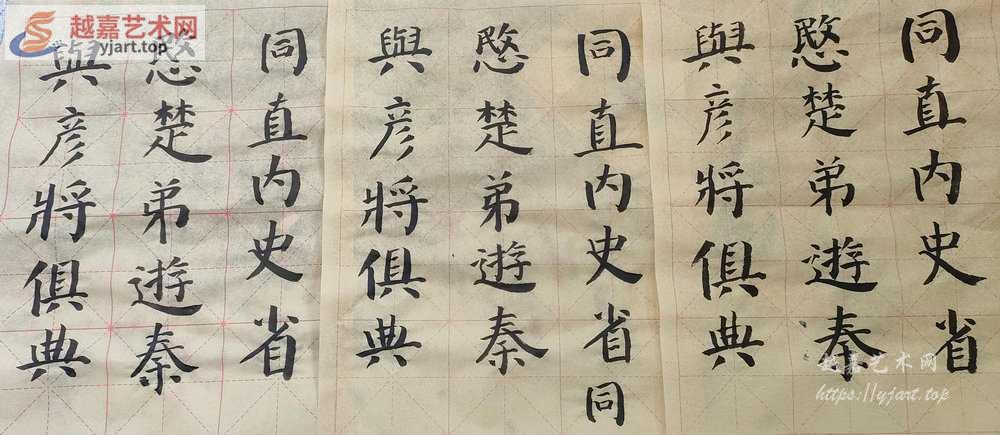 越嘉艺术网
yjart.top
同直内史省
愍楚弟遊秦
與彦將俱典
同直内史省同
愍楚弟遊秦
與彦將俱典
同直内史省
愍楚弟遊秦
與彦將俱典
越嘉艺术网
https://yjart.top